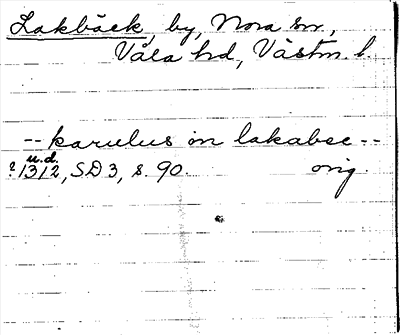 Lakbäck, by, Nora sn,
Våla hd, Västm. l.
-- karulus in lakabec --
u.d.
?1312, SD 3, s. 90. orig.